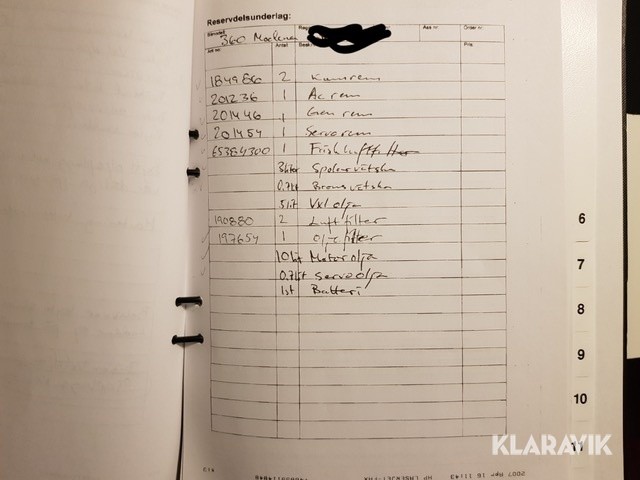 Reservdelsunderlag:
360 Modena
Art nr. Antal Ass nr Order nr
Pris
184986 2 Kamrem
201236 1 Ac rem
201446 1 Gen rem
201454 1 Servorem
65384300 1 Friskluftfilter
3 liter Spolarvätska
0.7 lit Bromsvätska
5 lit Vxl olja
190880 2 Luftfilter
197654 1 Oljefilter
10 lit Motorolja
0.7 lit Servoolja
1st Batteri
6
7
8
9
10
11
KLARAVIK